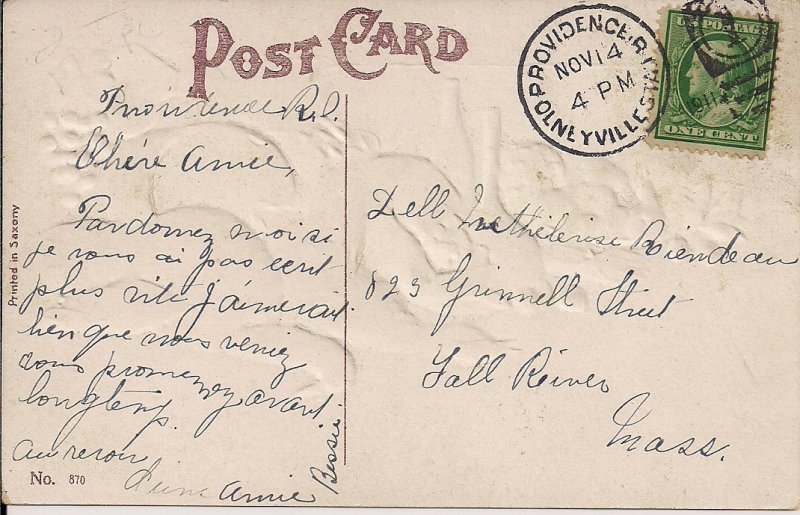 POST CARD
PROVIDENCE, R.I.
NOV 14
4 PM
OLNEYVILLE STA.
1911
U.S. POSTAGE
ONE CENT
Providence R.I.
Chère Amie,
Pardonnez moi si
je vous ai pas ecrit
plus vite j'aimerait
bien que vous veniez
vous promenez avant
longtemp.
au revoir
Amie
Bessie
Dell Riendeau
823 Grinnell Street
Fall River
Mass.
Printed in Saxony
No. 870